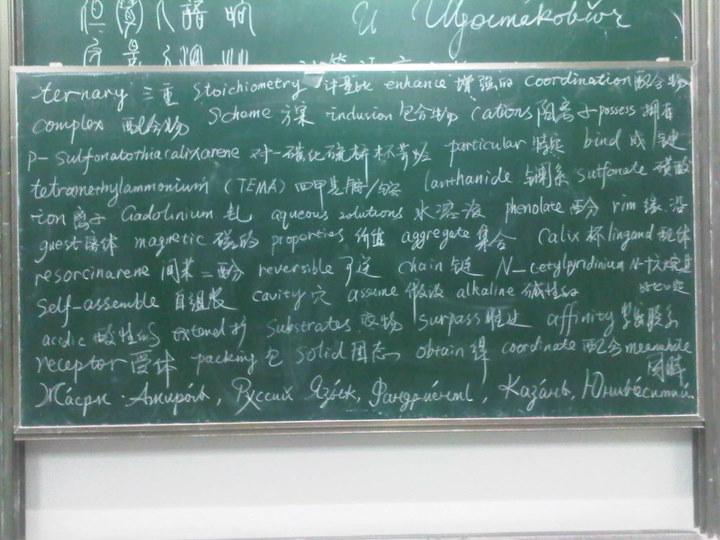 語 响
и
ternary 三重 stoichiometry 计量比 enhance 增强的 coordination 配合物
complex 配合物 Scheme 方案 inclusion 包合物 cations 阳离子 possess 拥有
p-sulfonatothiacalixarene 对-磺化硫杂杯芳烃 particular 特殊 bind 成键
tetramethylammonium (TEMA) 四甲基铵 lanthanide 镧系 sulfonate 磺酸
ion 离子 Gadolinium 钆 aqueous solutions 水溶液 phenolate 酚 rim 缘,沿
guest 客体 magnetic 磁的 properties 价值 aggregate 集合 Calix 杯 lingand 配体
resorcinarene 间苯二酚 reversible 可逆 chain 链 N-cetylpyridinium
self-assemble 自组装 cavity 穴 assume 假设 alkaline 碱性的
acidic 酸性的 extend 扩 substrates 底物 surpass 胜过 affinity
receptor 受体 packing 包 solid 固态 obtain 得 coordinate 配合 meanwhile
同时
Русский Язык, Казань,